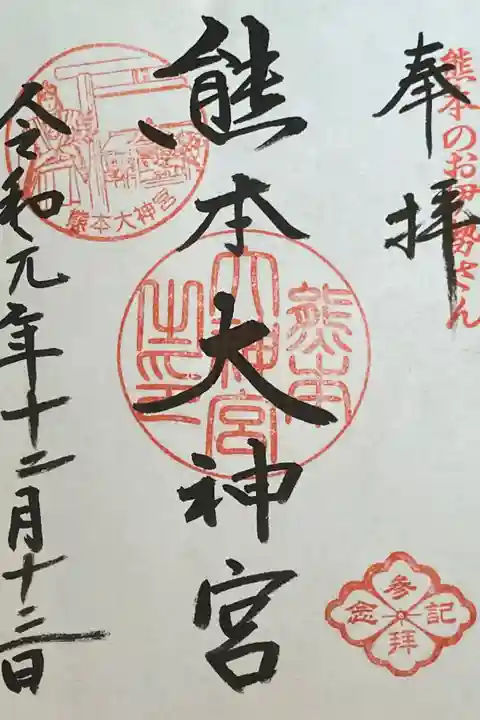 奉拝
熊本のお伊勢さん
熊本大神宮
熊本大神宮之印
熊本大神宮
参拝記念
令和元年十二月十三日